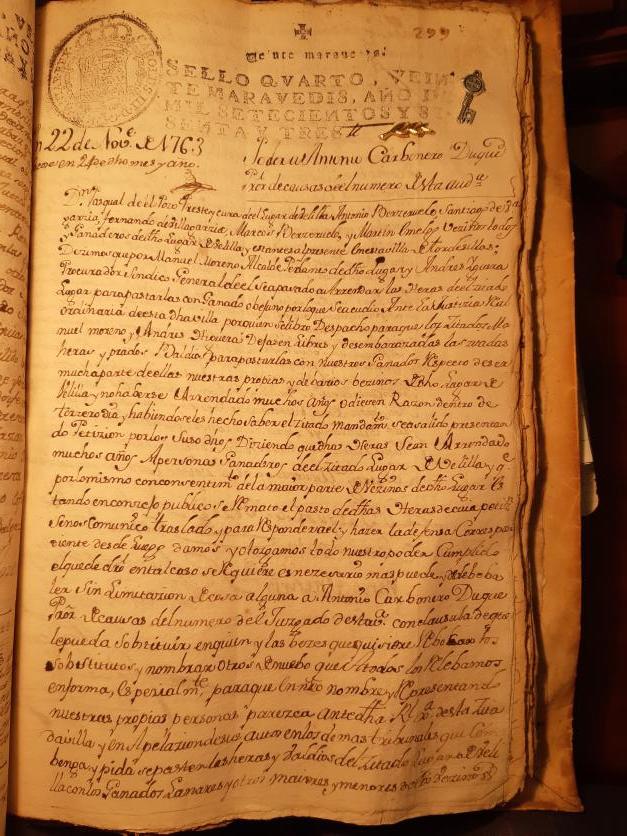 299
Veinte maravedis.
SELLO QVARTO, VEIN
TE MARAVEDIS, AÑO
MIL SETECIENTOS Y S
SENTA Y TRES
22 de Nov.e de 1763
en 24 de dho mes y año.
Poder a Antonio Carbonero Duque
Pror de causas del numero de esta aud.a
Dn Pasqual de el Pozo Presvey cura del lugar de Velilla, Antonio Berzeruelo, Santiago de
Fernando de Villagarzia, Marcos Berzeruelo, y Martin Onelos Vezinos todos
y Ganaderos de dho Lugar de Velilla y estantes al presente en esta villa de tordesillas:
Dezimos que por Manuel Moreno Alcalde Pedaneo de dho Lugar y Andres
Procurador Sindico General de el se a parado a Arrendar las Heras de el zitado
Lugar para pastarlas con Ganado obejuno por lo que se acudio Ante la Justizia
ordinaria de esta dha villa por quien se libro Despacho para que los zitados Ma
nuel moreno y Andres dejasen Libres y desembarazadas las zitadas
heras y prados Baldios para pastarlas con nuestros Ganados Respecto de ser
mucha parte de ellas nuestras propias y de barios bezinos de dho Lugar de
Velilla y no haberse Arrendado muchos años o diesen Razon dentro de
terzero dia y habiendoseles hecho saber el zitado mandam.to se a salido presentan
do Petizion por los suso dhos Diziendo que dhas Heras se an Arrendado
muchos años A personas Ganaderos de el zitado Lugar de Velilla y q.e
por lo mismo con consentim.to de la maior parte de Vezinos de dho Lugar es
tando en conzejo publico se Remato el pasto de dhas Heras de cuia petiz.n
se nos comunico traslado, y para Responder a el y hazer la defensa Corres pon
diente desde luego damos y otorgamos todo nuestro poder Cumplido
el que de dro en tal caso se Requiere es nezesario mas puede y debe ba
ler Sin Limitazion de cosa alguna a Antonio Carbonero Duque
Pror de causas del numero del Juzgado de esta v.a con clausula de q.e
le pueda sobstituir en quien y las bezes que quisiere Rebocar los
sobstitutos y nombrar otros de nuebo que a todos los Relebamos
en forma, Espezialm.te para que en nro nombre y Representando
nuestras propias personas parezca ante dha Rl de esta zita
da villa y en Apelazion de sus autos en los demas tribunales que com
benga y pida se pasten las heras y baldios del zitado Lugar de Veli
lla con los Ganados Lanares y otros maiores y menores de dho